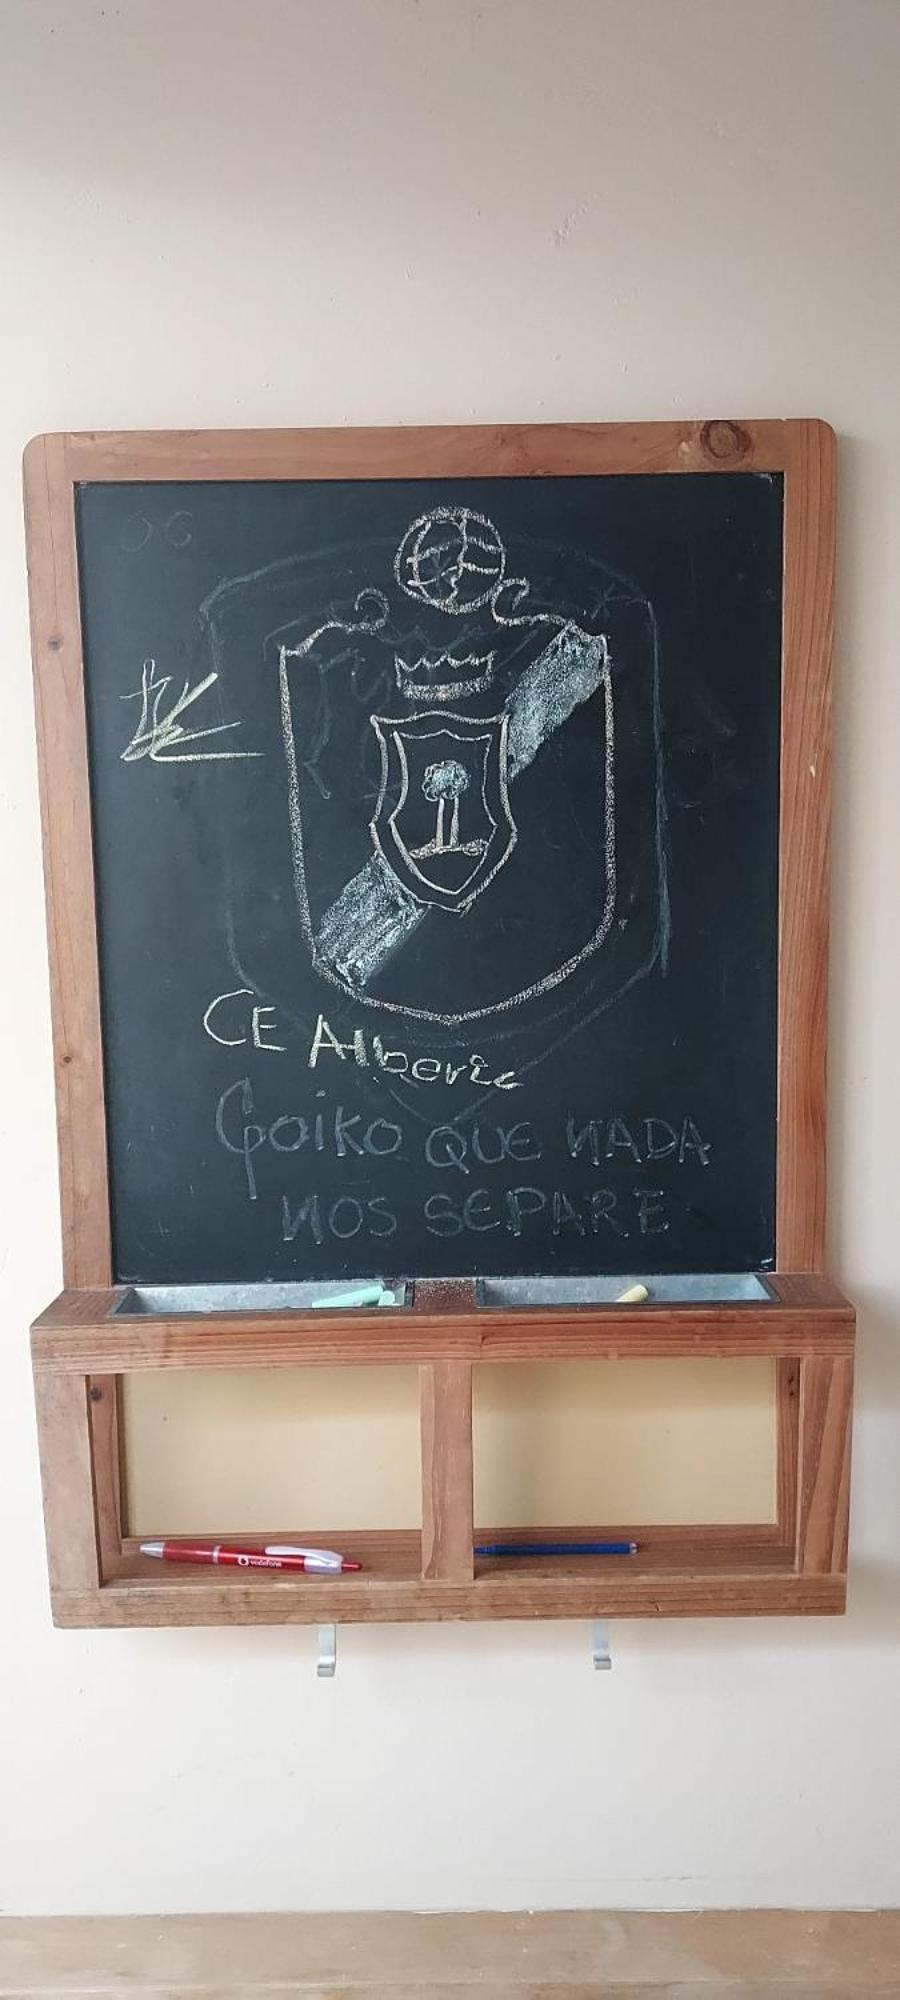 CE Alberic
Goiko QUE NADA
NOS SEPARE
vodafone